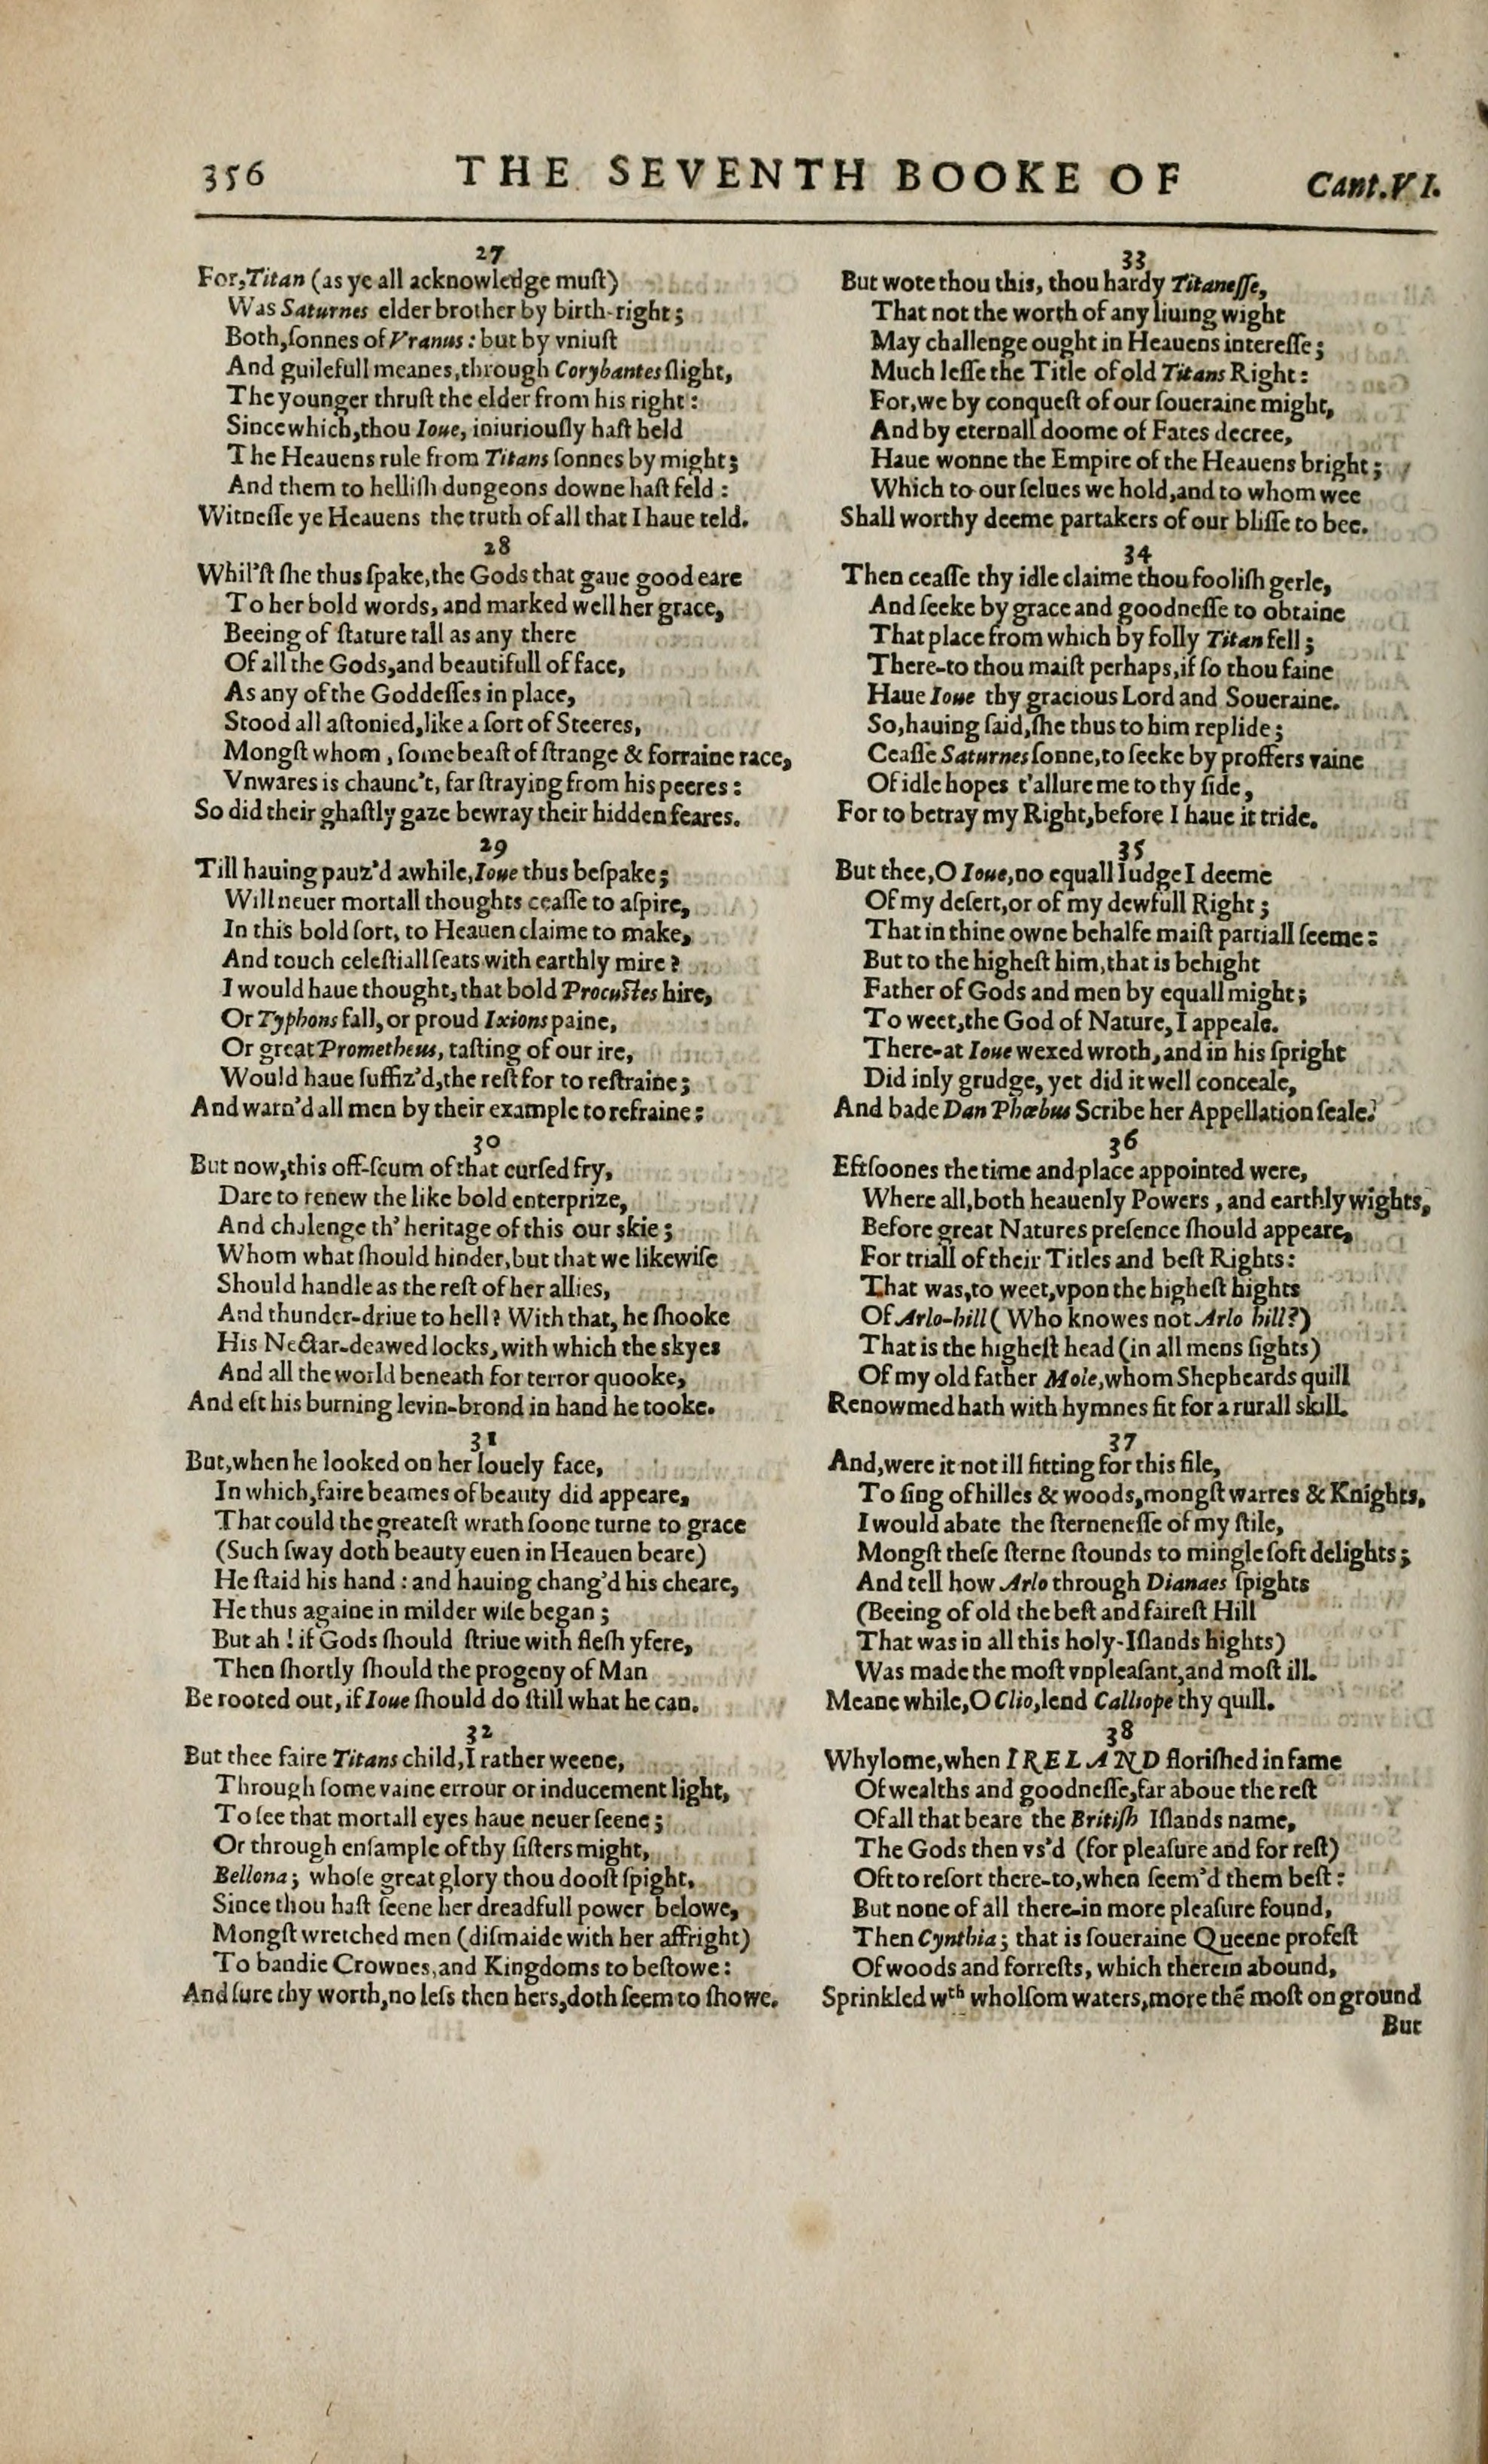 356 THE SEVENTH BOOKE OF Cant.VI.
27
For,Titan (as ye all acknowledge muſt)
Was Saturnes elder brother by birth-right;
Both,ſonnes of Vranus: but by vniuſt
And guilefull meanes,through Corybantes ſlight,
The younger thruſt the elder from his right:
Since which,thou Ioue, iniuriouſly haſt held
The Heauens rule from Titans ſonnes by might;
And them to helliſh dungeons downe haſt feld:
Witneſſe ye Heauens the truth of all that I haue teld.
28
Whil'ſt ſhe thus ſpake,the Gods that gaue good eare
To her bold words, and marked well her grace,
Beeing of ſtature tall as any there
Of all the Gods,and beautifull of face,
As any of the Goddeſſes in place,
Stood all aſtonied,like a ſort of Steeres,
Mongſt whom, ſome beaſt of ſtrange & forraine race,
Vnwares is chaunc't, far ſtraying from his peeres:
So did their ghaſtly gaze bewray their hidden feares.
29
Till hauing pauz'd awhile,Ioue thus beſpake;
Will neuer mortall thoughts ceaſſe to aſpire,
In this bold ſort, to Heauen claime to make,
And touch celeſtiall ſeats with earthly mire?
I would haue thought,that bold Procuſtes hire,
Or Typhons fall,or proud Ixions paine,
Or great Prometheus, taſting of our ire,
Would haue ſuffiz'd,the reſt for to reſtraine;
And warn'd all men by their example to refraine:
30
But now,this off-ſcum of that curſed fry,
Dare to renew the like bold enterprize,
And chalenge th' heritage of this our skie;
Whom what ſhould hinder,but that we likewiſe
Should handle as the reſt of her allies,
And thunder-driue to hell? With that, he ſhooke
His Nectar-deawed locks,with which the skyes
And all the world beneath for terror quooke,
And eft his burning levin-brond in hand he tooke.
31
But,when he looked on her louely face,
In which,faire beames of beauty did appeare,
That could the greateſt wrath ſoone turne to grace
(Such ſway doth beauty euen in Heauen beare)
He ſtaid his hand: and hauing chang'd his cheare,
He thus againe in milder wiſe began;
But ah! if Gods ſhould ſtriue with fleſh yfere,
Then ſhortly ſhould the progeny of Man
Be rooted out, if Ioue ſhould do ſtill what he can.
32
But thee faire Titans child,I rather weene,
Through ſome vaine errour or inducement light,
To ſee that mortall eyes haue neuer ſeene;
Or through enſample of thy ſiſters might,
Bellona; whoſe great glory thou dooſt ſpight,
Since thou haſt ſeene her dreadfull power belowe,
Mongſt wretched men (diſmaide with her affright)
To bandie Crownes,and Kingdoms to beſtowe:
And ſure thy worth,no leſs then hers,doth ſeem to ſhowe.
33
But wote thou this, thou hardy Titaneſſe,
That not the worth of any liuing wight
May challenge ought in Heauens intereſſe;
Much leſſe the Title of old Titans Right:
For,we by conqueſt of our ſoueraine might,
And by eternall doome of Fates decree,
Haue wonne the Empire of the Heauens bright;
Which to our ſelues we hold,and to whom wee
Shall worthy deeme partakers of our bliſſe to bee.
34
Then ceaſſe thy idle claime thou fooliſh gerle,
And ſeeke by grace and goodneſſe to obtaine
That place from which by folly Titan fell;
There-to thou maiſt perhaps,if ſo thou faine
Haue Ioue thy gracious Lord and Soueraine.
So,hauing ſaid,ſhe thus to him replide;
Ceaſſe Saturnes ſonne,to ſeeke by proffers vaine
Of idle hopes t'allure me to thy ſide,
For to betray my Right,before I haue it tride.
35
But thee,O Ioue,no equall Iudge I deeme
Of my deſert,or of my dewfull Right;
That in thine owne behalfe maiſt partiall ſeeme:
But to the higheſt him,that is behight
Father of Gods and men by equall might;
To weet,the God of Nature,I appeale.
There-at Ioue wexed wroth,and in his ſpright
Did inly grudge, yet did it well conceale,
And bade Dan Phœbus Scribe her Appellation ſeale.
36
Eftſoones the time and place appointed were,
Where all,both heauenly Powers, and earthly wights,
Before great Natures preſence ſhould appeare,
For triall of their Titles and beſt Rights:
That was,to weet,vpon the higheſt hights
Of Arlo-hill (Who knowes not Arlo hill?)
That is the higheſt head (in all mens ſights)
Of my old father Mole,whom Shepheards quill
Renowmed hath with hymnes fit for a rurall skill.
37
And,were it not ill fitting for this file,
To ſing of hilles & woods,mongſt warres & Knights,
I would abate the ſterneneſſe of my ſtile,
Mongſt theſe ſterne ſtounds to mingle ſoft delights;
And tell how Arlo through Dianaes ſpights
(Beeing of old the beſt and faireſt Hill
That was in all this holy-Iſlands hights)
Was made the moſt vnpleaſant,and moſt ill.
Meane while,O Clio,lend Calliope thy quill.
38
Whylome,when IRELAND floriſhed in fame
Of wealths and goodneſſe,far aboue the reſt
Of all that beare the Britiſh Iſlands name,
The Gods then vs'd (for pleaſure and for reſt)
Oft to reſort there-to,when ſeem'd them beſt:
But none of all there-in more pleaſure found,
Then Cynthia; that is ſoueraine Queene profeſt
Of woods and forreſts, which therein abound,
Sprinkled wth wholſom waters,more thẽ moſt on ground
But